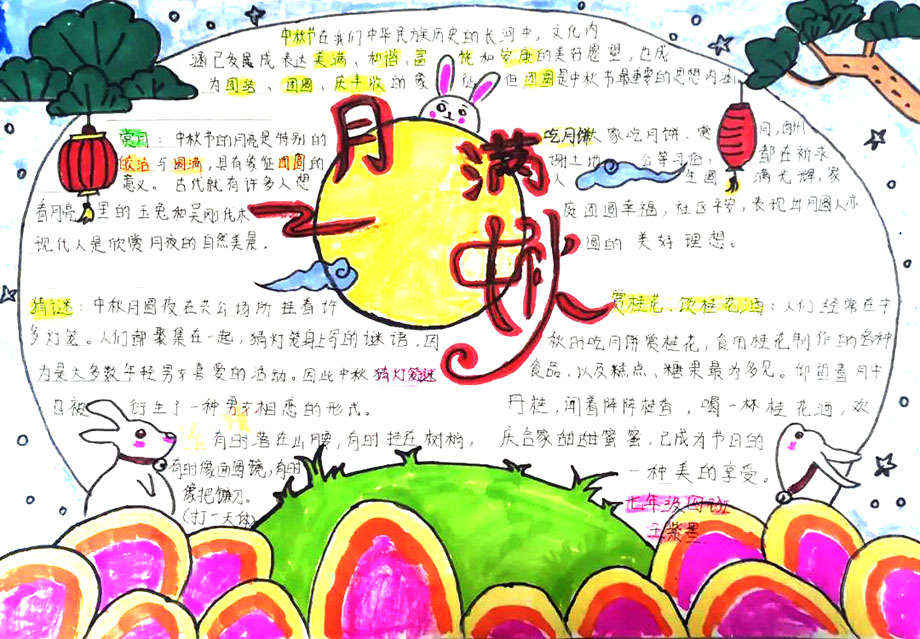 月满中秋
中秋节在我们中华民族历史的长河中，文化内
涵已发展成表达美满、和谐、富 和安康的美好愿望，也成
为团结、团圆、庆丰收的象征 但团圆是中秋节最重要的思想内涵
赏月：中秋节的月亮是特别的
与圆满，具有象征团圆的
意义。古代就有许多人想
看月亮 里的玉兔和吴刚伐木
现代人是欣赏月夜的自然美景。
吃月饼 家吃月饼、赏 月，
谢土地 公等习俗， 都在祈求
人 生圆 满光辉，家
庭团圆幸福，社区平安，表现出月圆人亦
圆的美好理想。
猜谜：中秋月圆夜在公公场所挂着许
多灯笼。人们都聚集在一起，猜灯笼身上写的谜语，因
为是大多数年轻男女喜爱的活动。因此中秋猜灯笼谜
也被 衍生了一种男女相恋的形式。
有时落在山腰，有时挂在树梢，
有时像面圆镜，有时
像把镰刀。
(打一天体)
赏桂花、饮桂花酒：人们经常在中
秋时吃月饼赏桂花，食用桂花制作的各种
食品，以及糕点、糖果最为多见。仰望着月中
丹桂，闻着阵阵桂香，喝一杯桂花酒，欢
庆合家甜甜蜜蜜，已成为节日的
一种美的享受。
七年级四班
王紫墨